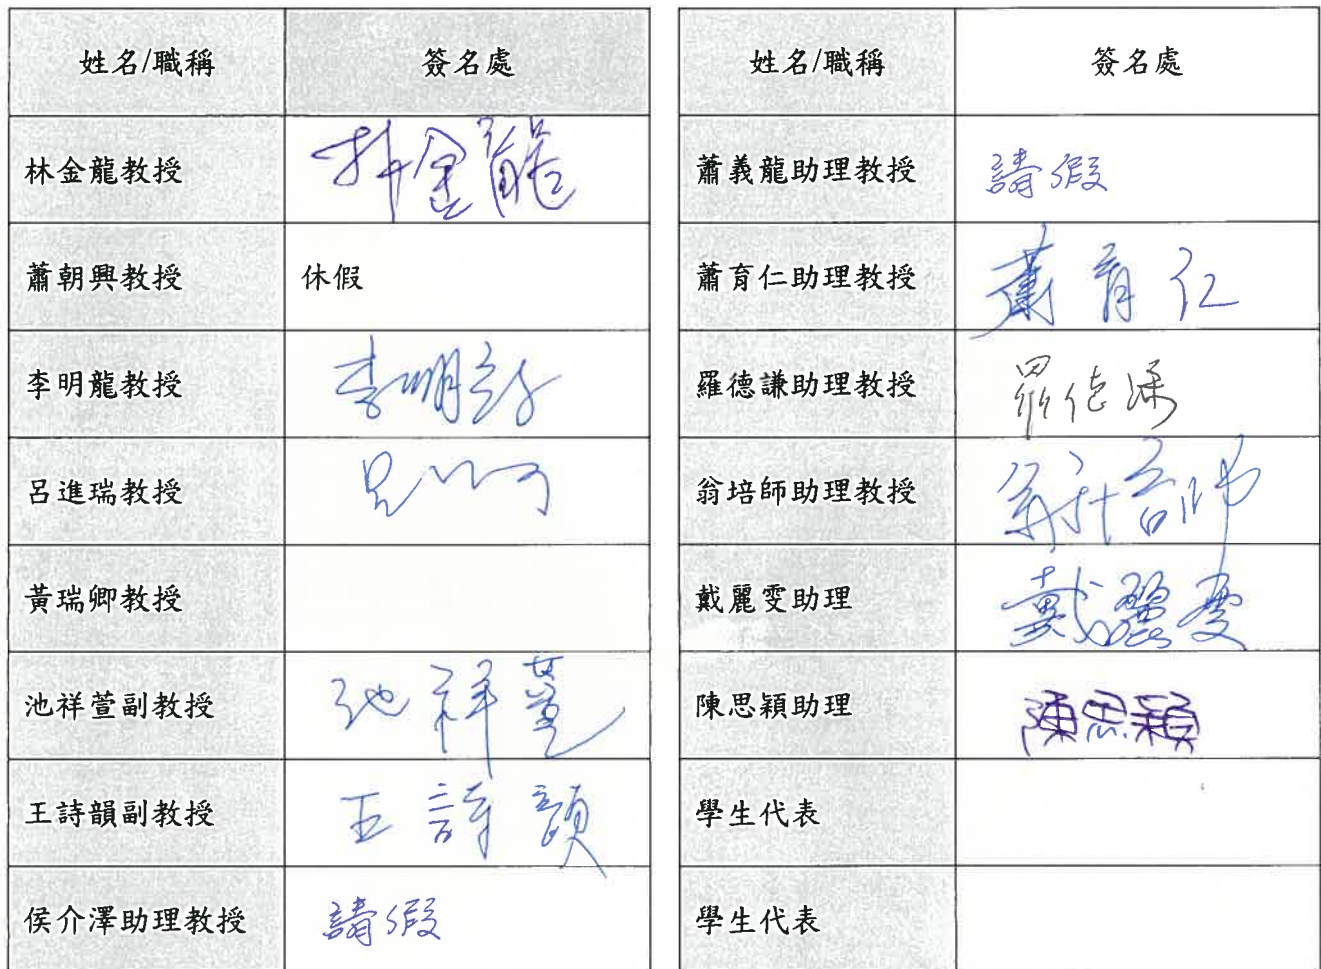 姓名/職稱 簽名處
林金龍教授 林金龍
蕭朝興教授 休假
李明龍教授 李明龍
呂進瑞教授
黃瑞卿教授
池祥萱副教授 池祥萱
王詩韻副教授 王詩韻
侯介澤助理教授 請假
姓名/職稱 簽名處
蕭義龍助理教授 請假
蕭育仁助理教授 蕭育仁
羅德謙助理教授 羅德謙
翁培師助理教授 翁培師
戴麗雯助理 戴麗雯
陳思穎助理 陳思穎
學生代表
學生代表